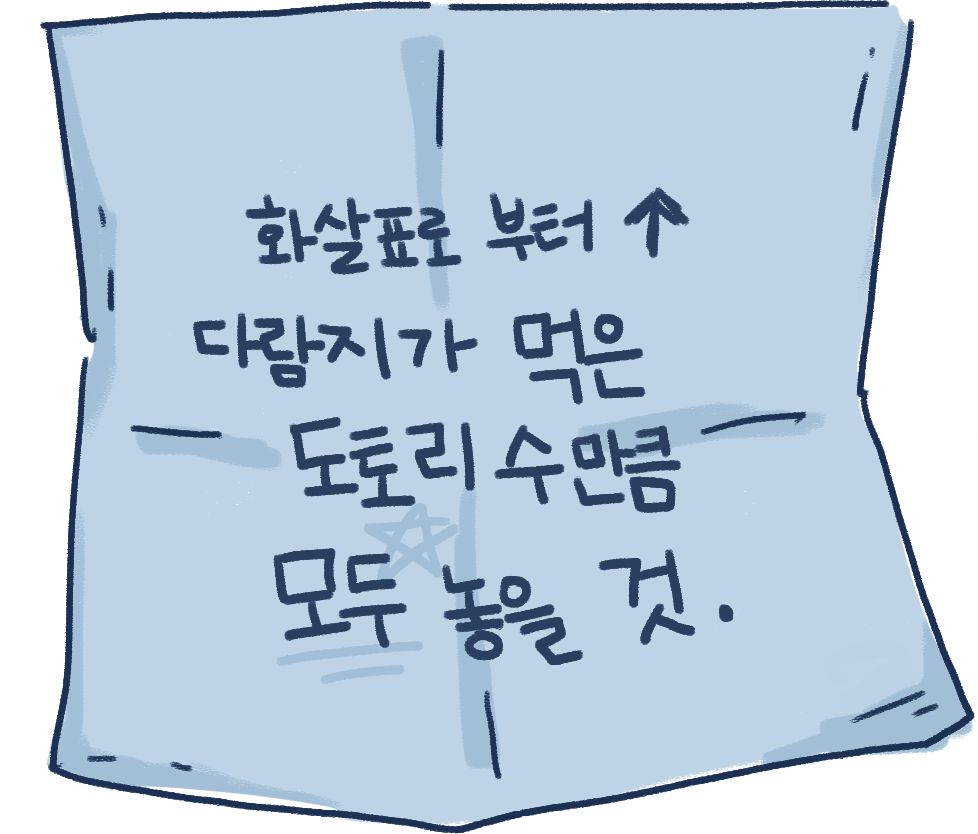 화살표로 부터 ↑
다람지가 먹은
도토리 수만큼
모두 놓을 것.